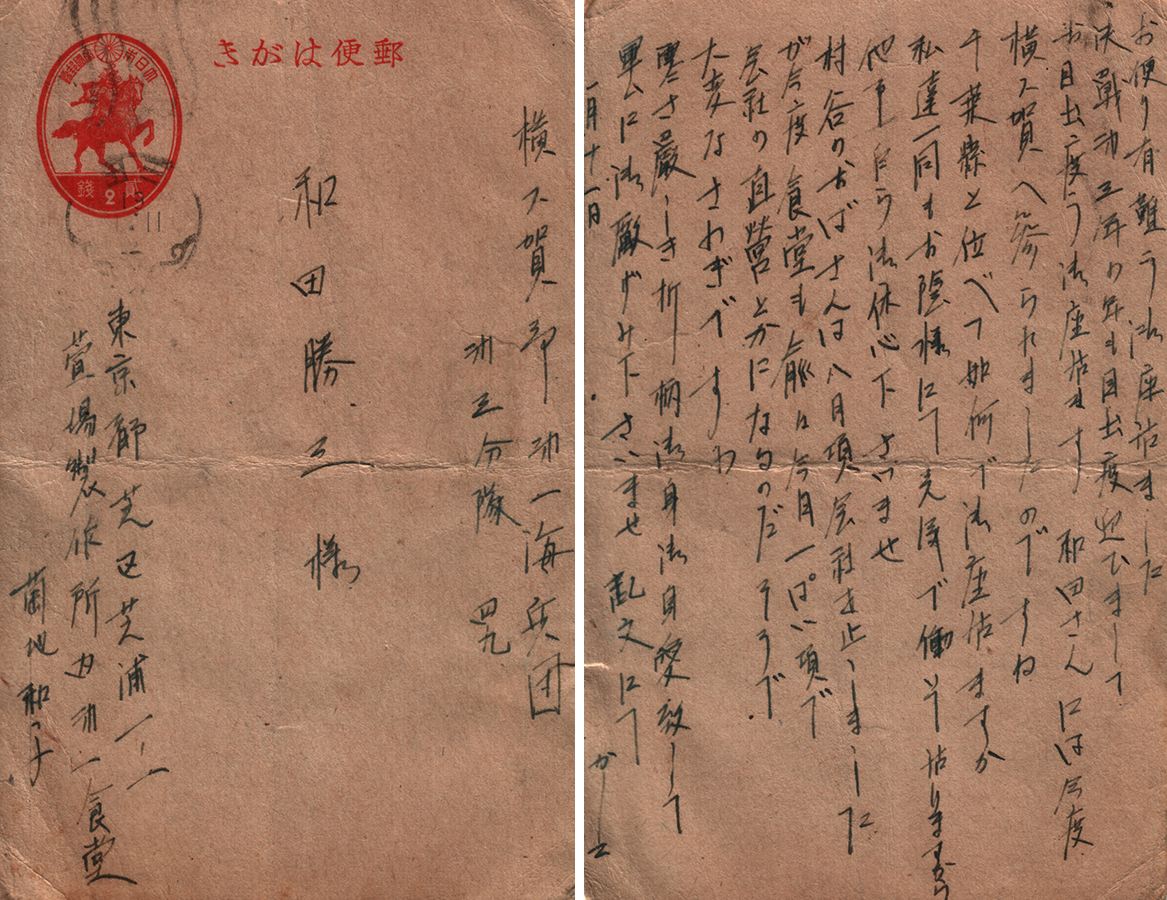 郵便はがき
大日本帝國郵便
貳錢 2
19
1.11
横ス賀
一海兵団
分隊 四九
和田勝三様
東京都芝区芝浦一ノ一
萱場製作所内 一食堂
菊地和子
お便り有難う御座居ました
決戦 三年の年も目出度迎ひまして
お目出度う御座居ます 和田さんには今度
横ス賀へ参られましたのですね
千葉縣と位べて如何で御座居ますか
私達一同もお陰様にて元気で働いて居りますから
他事 御休心下さいませ
村谷のおばさんは八月項会社を止しました
が今度食堂も 今月一ぱい項で
会社の直営とかになるのだそうで
大変なさわぎですわ
寒さ厳しき折柄御身御自愛致して
軍ムに御厳げみ下さいませ 乱文にて
一月十一日 かしこ